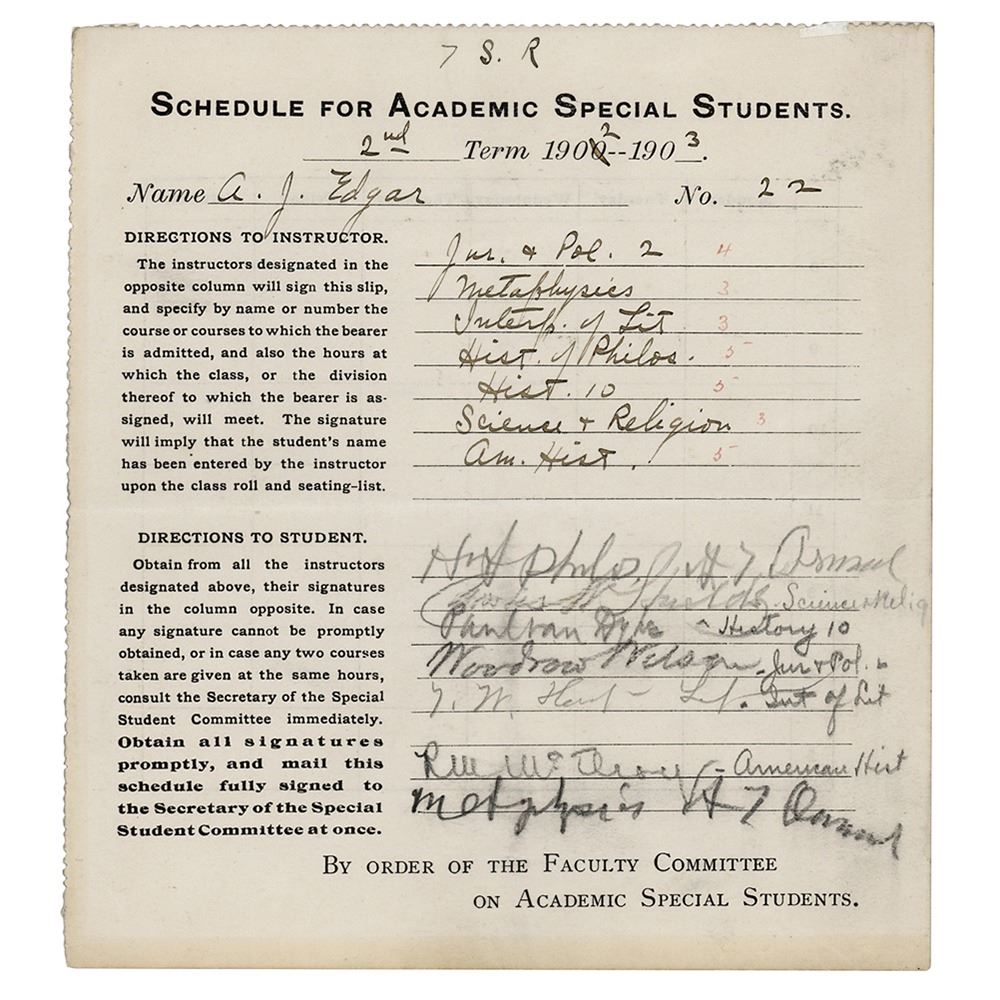 7 S. R
SCHEDULE FOR ACADEMIC SPECIAL STUDENTS.
2nd Term 1902--1903.
Name A. J. Edgar No. 22
DIRECTIONS TO INSTRUCTOR.
The instructors designated in the
opposite column will sign this slip,
and specify by name or number the
course or courses to which the bearer
is admitted, and also the hours at
which the class, or the division
thereof to which the bearer is as-
signed, will meet. The signature
will imply that the student's name
has been entered by the instructor
upon the class roll and seating-list.
Jur. & Pol. 2 4
Metaphysics 3
Interp. of Lit 3
Hist. of Philos. 5
Hist. 10 5
Science & Religion 3
Am. Hist. 5
DIRECTIONS TO STUDENT.
Obtain from all the instructors
designated above, their signatures
in the column opposite. In case
any signature cannot be promptly
obtained, or in case any two courses
taken are given at the same hours,
consult the Secretary of the Special
Student Committee immediately.
Obtain all signatures
promptly, and mail this
schedule fully signed to
the Secretary of the Special
Student Committee at once.
Hist Philos
Science & Relig
Paul van Dyke - History 10
Woodrow Wilson - Jur & Pol. 2
T. W. Hunt - Int of Lit
- American Hist
Metaphysics
BY ORDER OF THE FACULTY COMMITTEE
ON ACADEMIC SPECIAL STUDENTS.